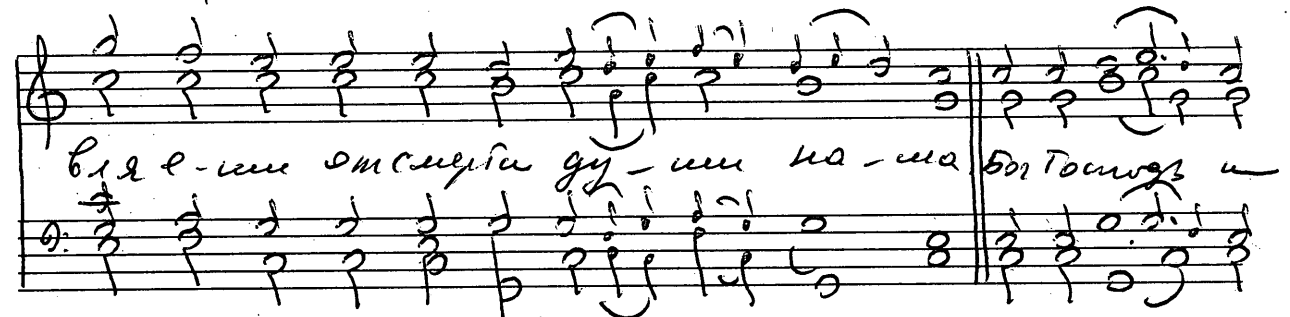 вляе-ши от смерти ду-ши на-ша Бог Господь и